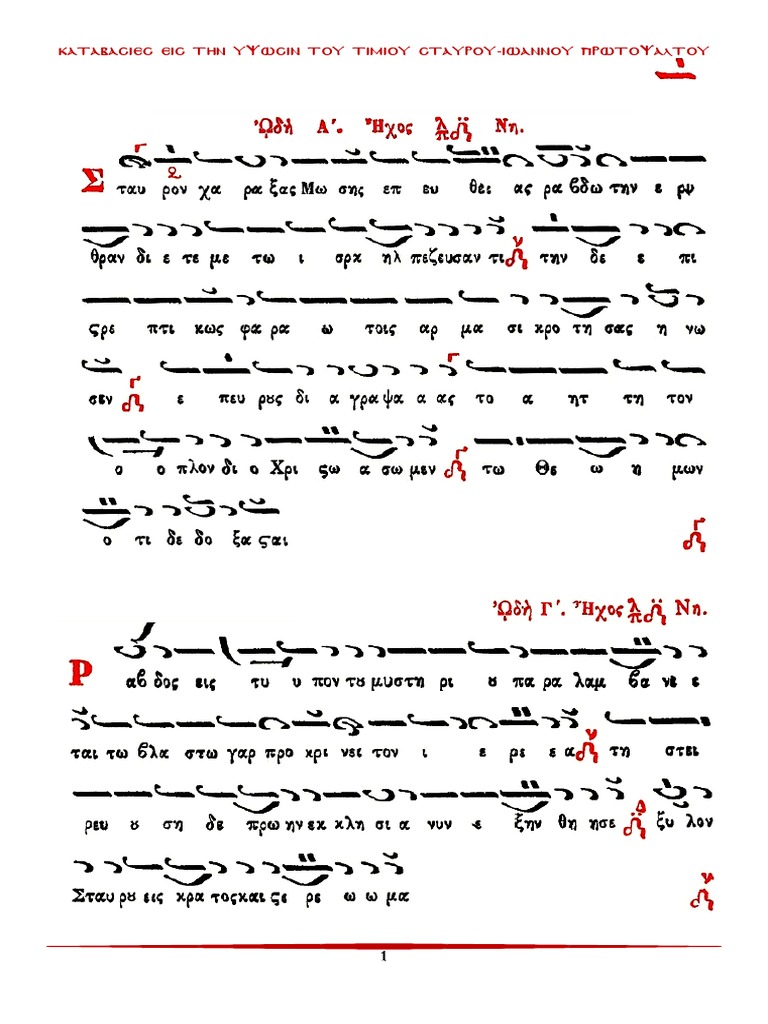 ΚΑΤΑΒΑΣΙΕΣ ΕΙΣ ΤΗΝ ΥΨΩΣΙΝ ΤΟΥ ΤΙΜΙΟΥ ΣΤΑΥΡΟΥ-ΙΩΑΝΝΟΥ ΠΡΩΤΟΨΑΛΤΟΥ
ᾨδὴ Α΄. Ἦχος Νη.
Σ ταυ ρον χα ρα ξας Μω σης επ ευ θει ας ρα βδω την ε ρυ
θραν δι ε τε με τω ι σρα ηλ πεζευσαν τι την δε ε πι
ϛρε πτι κως φα ρα ω τοις αρ μα σι κρο τη σας η νω
σεν ε πευ ρȣς δι α γρα ψα α ας το α ητ τη τον
ο ο πλον δι ο Χρι ϛω α σω μεν τω Θε ω η μων
ο τι δε δο ξα ϛαι
ᾨδὴ Γ΄. Ἦχος Νη.
Ρ αβ δος εις τυ υ πον τȣ μυστη ρι ȣ πα ρα λαμ βα νε ε
ται τω βλα στω γαρ προ κρι νει τον ι ε ρε ε α τη στει
ρευ ȣ ση δε πρω ην εκ κλη σι α νυν ε ξην θη ησε ξυ λον
Σταυ ρȣ εις κρα τος και ϛε ρε ω ω μα
1